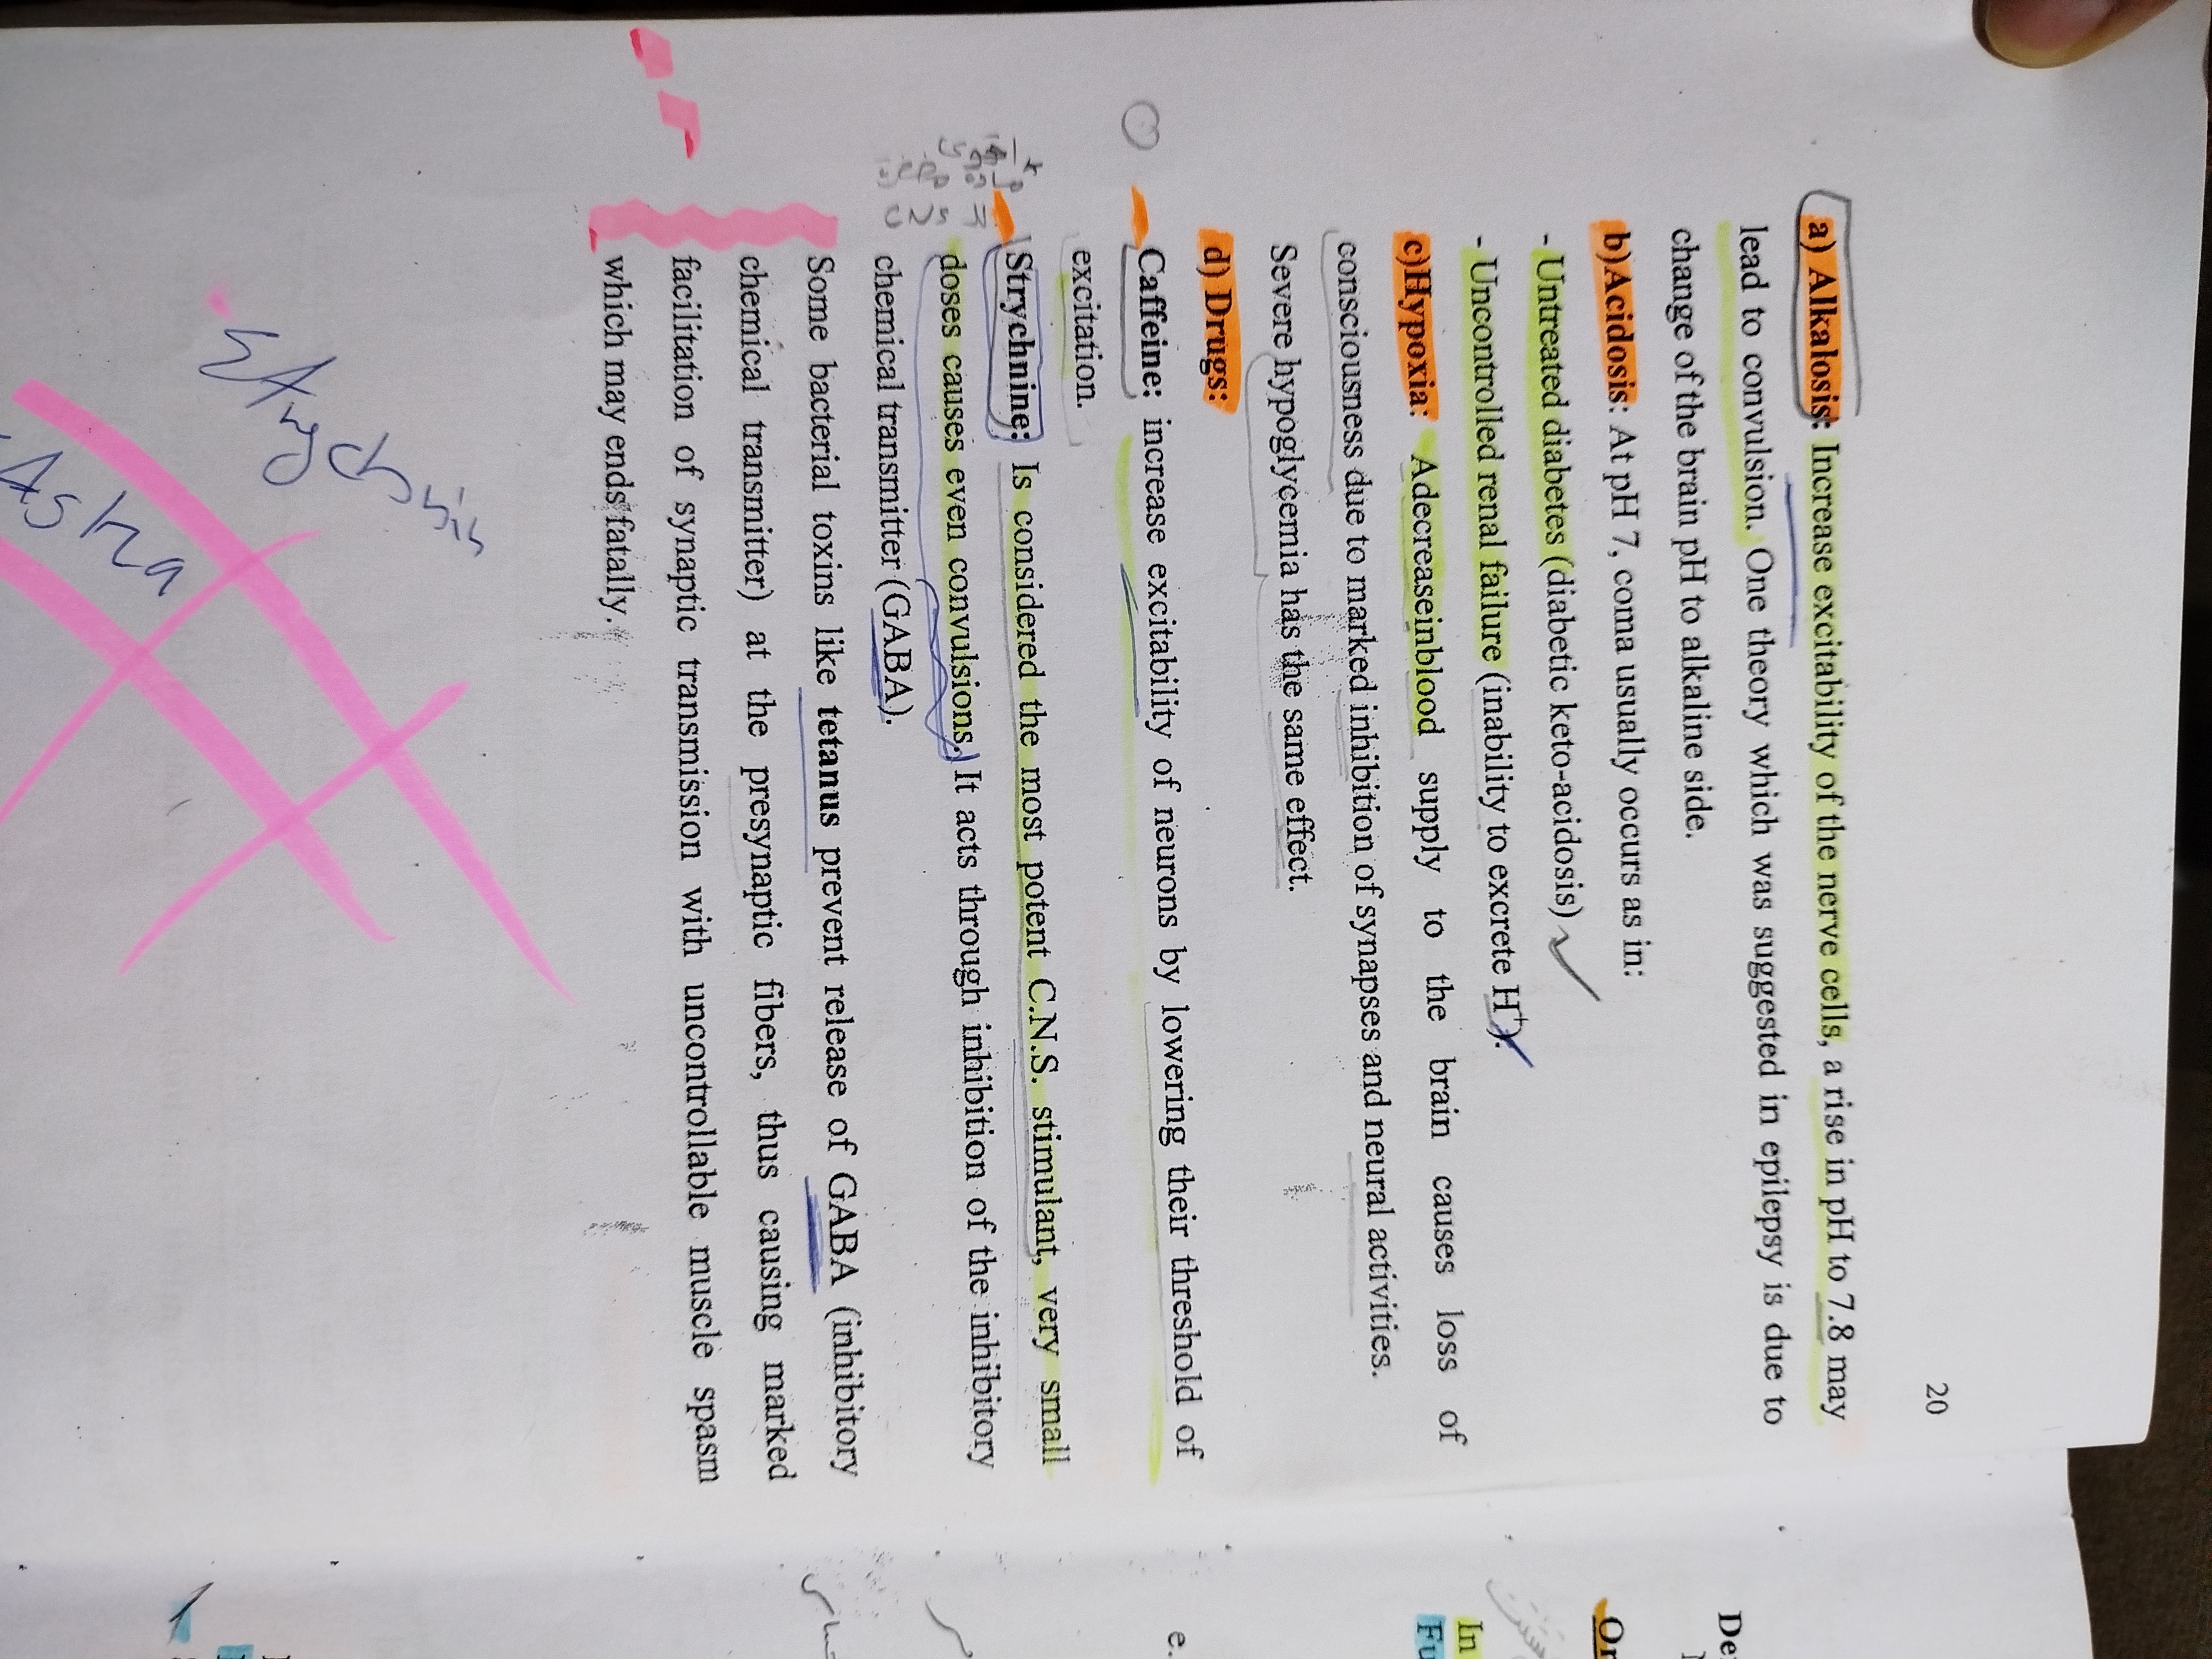 20
a) Alkalosis: Increase excitability of the nerve cells, a rise in pH to 7.8 may
lead to convulsion. One theory which was suggested in epilepsy is due to
change of the brain pH to alkaline side.
b)Acidosis: At pH 7, coma usually occurs as in:
- Untreated diabetes (diabetic keto-acidosis)
- Uncontrolled renal failure (inability to excrete H⁺).
c)Hypoxia: Adecreaseinblood supply to the brain causes loss of
consciousness due to marked inhibition of synapses and neural activities.
Severe hypoglycemia has the same effect.
d) Drugs:
Caffeine: increase excitability of neurons by lowering their threshold of
excitation.
Strychnine: Is considered the most potent C.N.S. stimulant, very small
doses causes even convulsions. It acts through inhibition of the inhibitory
chemical transmitter (GABA).
Some bacterial toxins like tetanus prevent release of GABA (inhibitory
chemical transmitter) at the presynaptic fibers, thus causing marked
facilitation of synaptic transmission with uncontrollable muscle spasm
which may ends fatally.
De
Or
In
Fu
e.